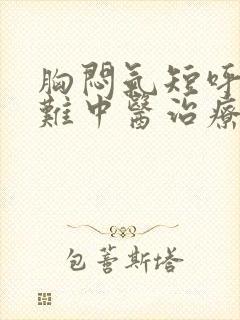 胸悶氣短呼
難中醫治療
包薈斯塔